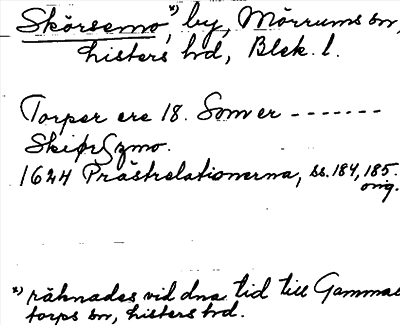 Skörsemo *), by, Mörrums sn,
Listers hd, Blek. l.
Torper ere 18. Som er -------
Skiørszmo.
1624 Prästrelationerna, ss. 184, 185.
orig.
*) räknades vid dna tid till Gammal
torps sn, Listers hd.